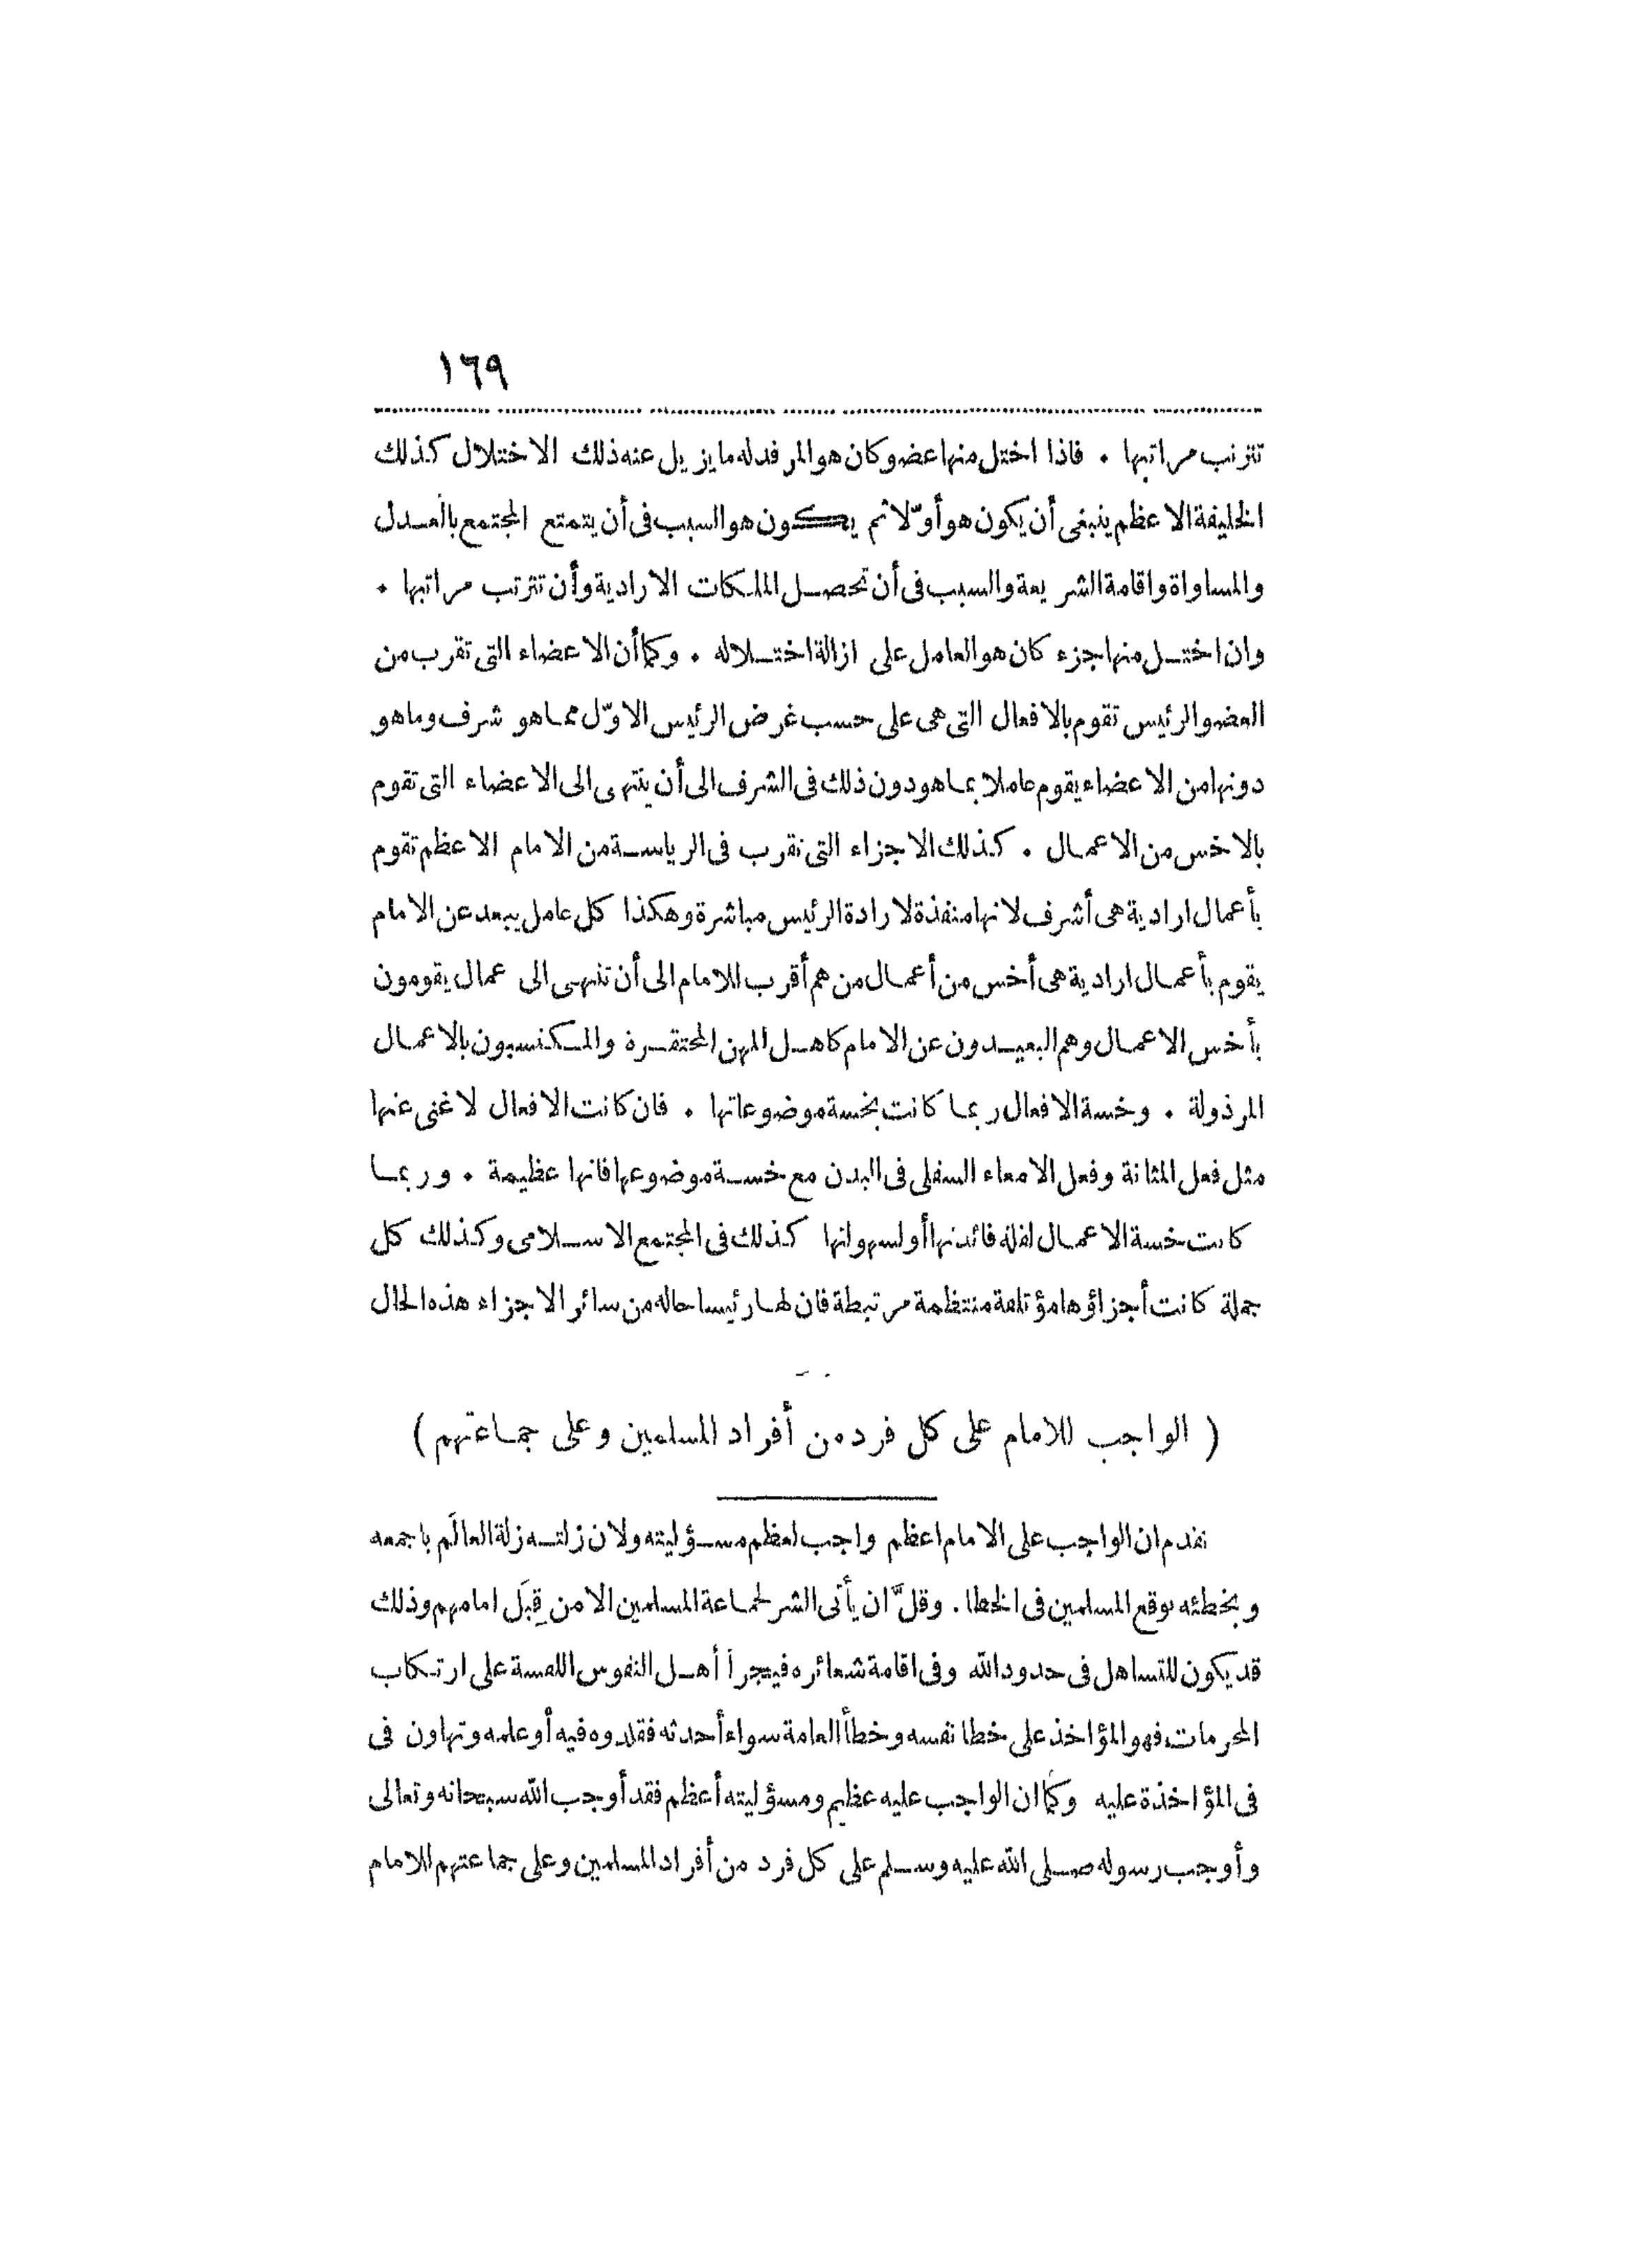 ١٦٩
تترتب مراتبها . فاذا اختل منها عضو كان هو المرفد له ما يزيل عنه ذلك الاختلال كذلك
الخليفة الاعظم ينبغى أن يكون هو أوّلا ثم يكون هو السبب فى أن يتمتع المجتمع بالعدل
والمساواة واقامة الشريعة والسبب فى أن تحصل الملكات الارادية وأن تترتب مراتبها .
وان اختل منها جزء كان هو العامل على ازالة اختلاله . وكما أن الاعضاء التى تقرب من
العضو الرئيس تقوم بالافعال التى هى على حسب غرض الرئيس الاوّل مما هو شرف وما هو
دونها من الاعضاء يقوم عاملا بما هو دون ذلك فى الشرف الى أن ينتهى الى الاعضاء التى تقوم
بالاخس من الاعمال . كذلك الاجزاء التى تقرب فى الرياسة من الامام الاعظم تقوم
بأعمال ارادية هى أشرف لانها منفذة لارادة الرئيس مباشرة وهكذا كل عامل يبعد عن الامام
يقوم بأعمال ارادية هى أخس من أعمال من هم أقرب للامام الى أن تنتهى الى عمال يقومون
بأخس الاعمال وهم البعيدون عن الامام كاهل المهن المحتقرة والمكتسبون بالاعمال
المرذولة . وخسة الافعال ربما كانت بخسة موضوعاتها . فان كانت الافعال لا غنى عنها
مثل فعل المثانة وفعل الامعاء السفلى فى البدن مع خسة موضوعها فانها عظيمة . وربما
كانت خسة الاعمال لقلة فائدتها أو لسهولتها كذلك فى المجتمع الاسلامى وكذلك كل
جملة كانت أجزاؤها مؤتلفة منتظمة مرتبطة فان لها رئيسا حاله من سائر الاجزاء هذه الحال
( الواجب للامام على كل فرد من أفراد المسلمين وعلى جماعتهم )
تقدم ان الواجب على الامام اعظم واجب لعظم مسؤليته ولان زلته زلة العالَم باجمعه
وبخطئه يوقع المسلمين فى الخطا . وقلَّ ان يأتى الشر لجماعة المسلمين الا من قِبَل امامهم وذلك
قد يكون للتساهل فى حدود الله وفى اقامة شعائره فيجرأ أهل النفوس اللقسة على ارتكاب
المحرمات فهو المؤاخذ على خطا نفسه وخطأ العامة سواء أحدثه فقلدوه فيه أو علمه وتهاون فى
فى المؤاخذة عليه وكما ان الواجب عليه عظيم ومسؤليته أعظم فقد أوجب الله سبحانه وتعالى
وأوجب رسوله صلى الله عليه وسلم على كل فرد من أفراد المسلمين وعلى جماعتهم للامام